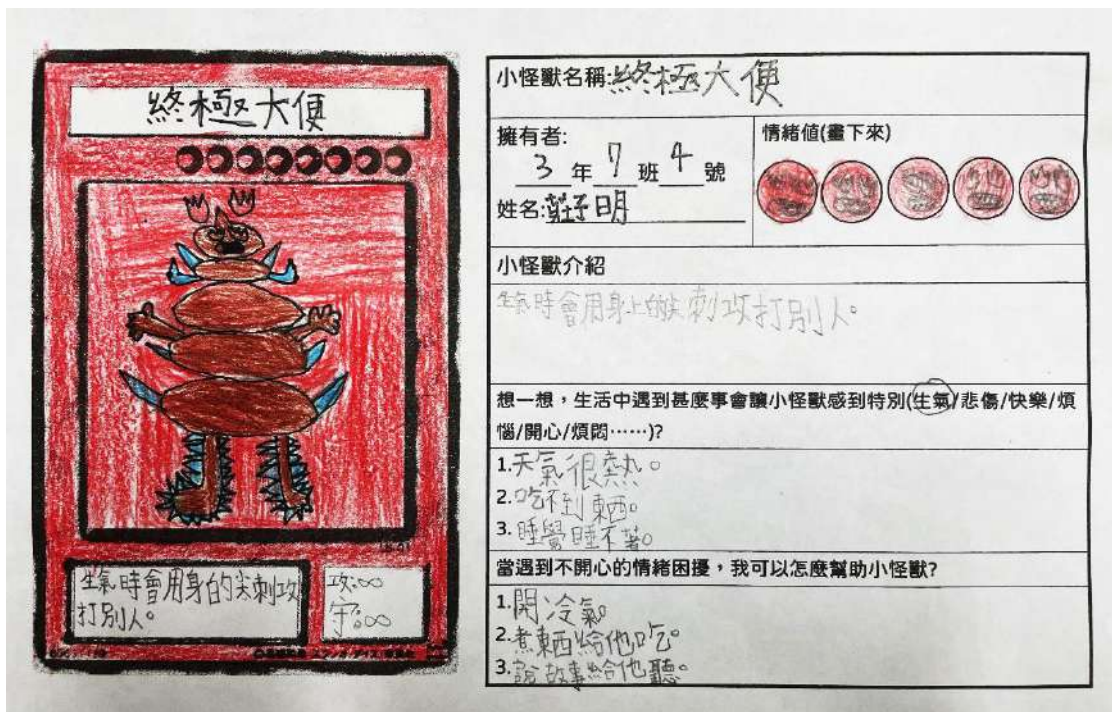 終極大便
生氣時會用身的尖刺攻
打別人。
攻:∞
守:∞
小怪獸名稱:終極大便
擁有者:
3 年 7 班 4 號
姓名:莊子明
情緒值(畫下來)
小怪獸介紹
生氣時會用身上的尖刺攻打別人。
想一想,生活中遇到甚麼事會讓小怪獸感到特別(生氣/悲傷/快樂/煩
惱/開心/煩悶……)?
1.天氣很熱。
2.吃不到東西。
3.睡覺睡不著。
當遇到不開心的情緒困擾,我可以怎麼幫助小怪獸?
1.開冷氣
2.煮東西給他吃。
3.說故事給他聽。